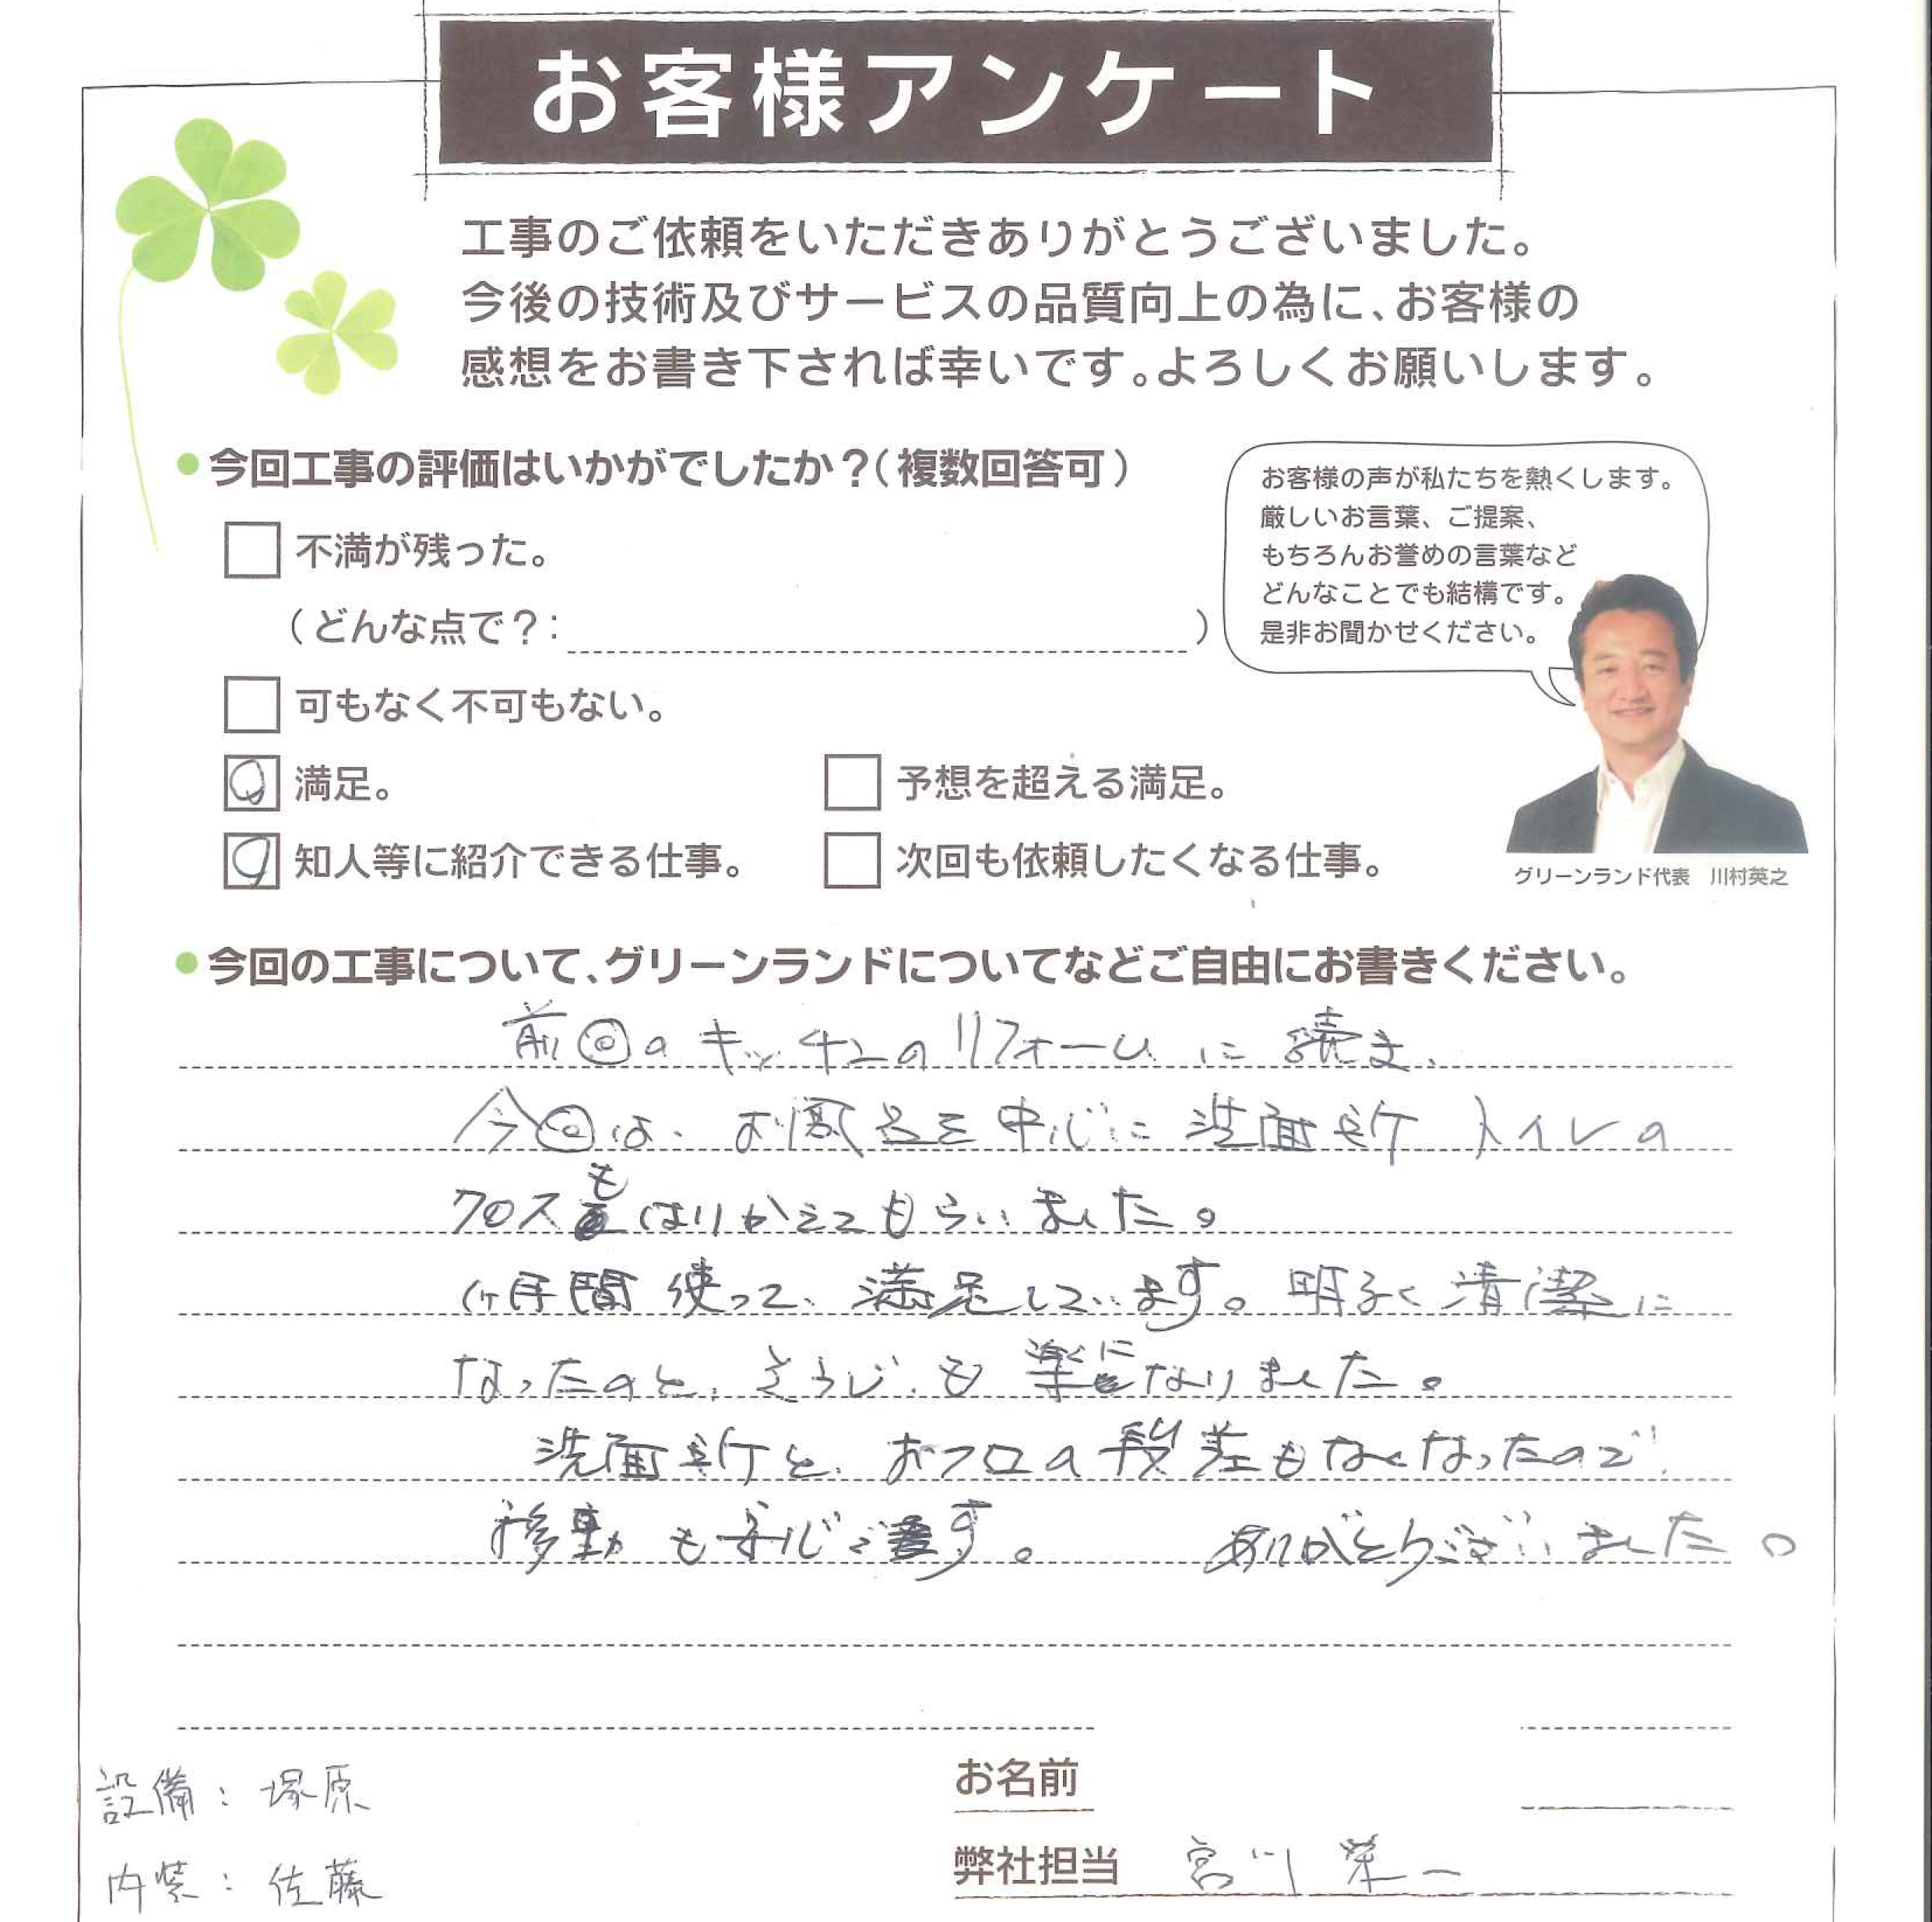 お客様アンケート
工事のご依頼をいただきありがとうございました。
今後の技術及びサービスの品質向上の為に、お客様の
感想をお書き下されば幸いです。よろしくお願いします。
●今回工事の評価はいかがでしたか？(複数回答可)
不満が残った。
(どんな点で？: )
可もなく不可もない。
満足。
予想を超える満足。
知人等に紹介できる仕事。
次回も依頼したくなる仕事。
お客様の声が私たちを熱くします。
厳しいお言葉、ご提案、
もちろんお誉めの言葉など
どんなことでも結構です。
是非お聞かせください。
グリーンランド代表 川村英之
●今回の工事について、グリーンランドについてなどご自由にお書きください。
前回のキッチンのリフォームに続き、
今回は、お風呂を中心に洗面所 トイレの
クロスもはりかえてもらいました。
1ヶ月間使って、満足しています。明るく清潔に
なったのと、そうじも楽になりました。
洗面所と、おフロの段差もなくなったので
移動も安心です。 ありがとうございました。
設備：塚原
内装：佐藤
お名前
弊社担当 宮川 栄一